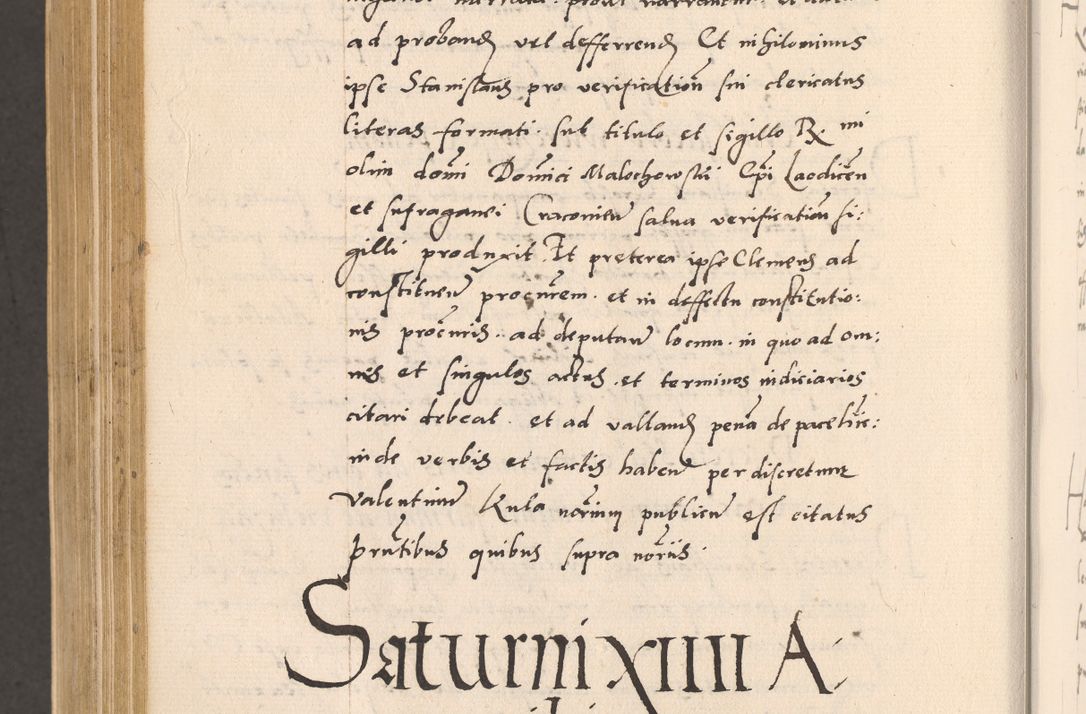 ad proband vel defferrend Et nihilominus
ipse Stanislaus pro verification sui clericatus
literas formati. sub titulo et sigillo R. mi
olim domi Domici Malochowski Epi Laodicen
et sufraganei Cracovien salva verification si:
gilli produxit. Et preterea ipse Clemens ad
constituen procurem. et in deffectu constitutio:
nis procuris. ad deputan locum. in quo ad om:
nes et singulos actus. et terminos indiciarios
citari debeat. et ad valland pena de pace hinc:
inde verbis et factis haben per discretum
Valentinum Kula norium publicu est citatus
prntibus quibus supra noriis.
Saturni XIIII A